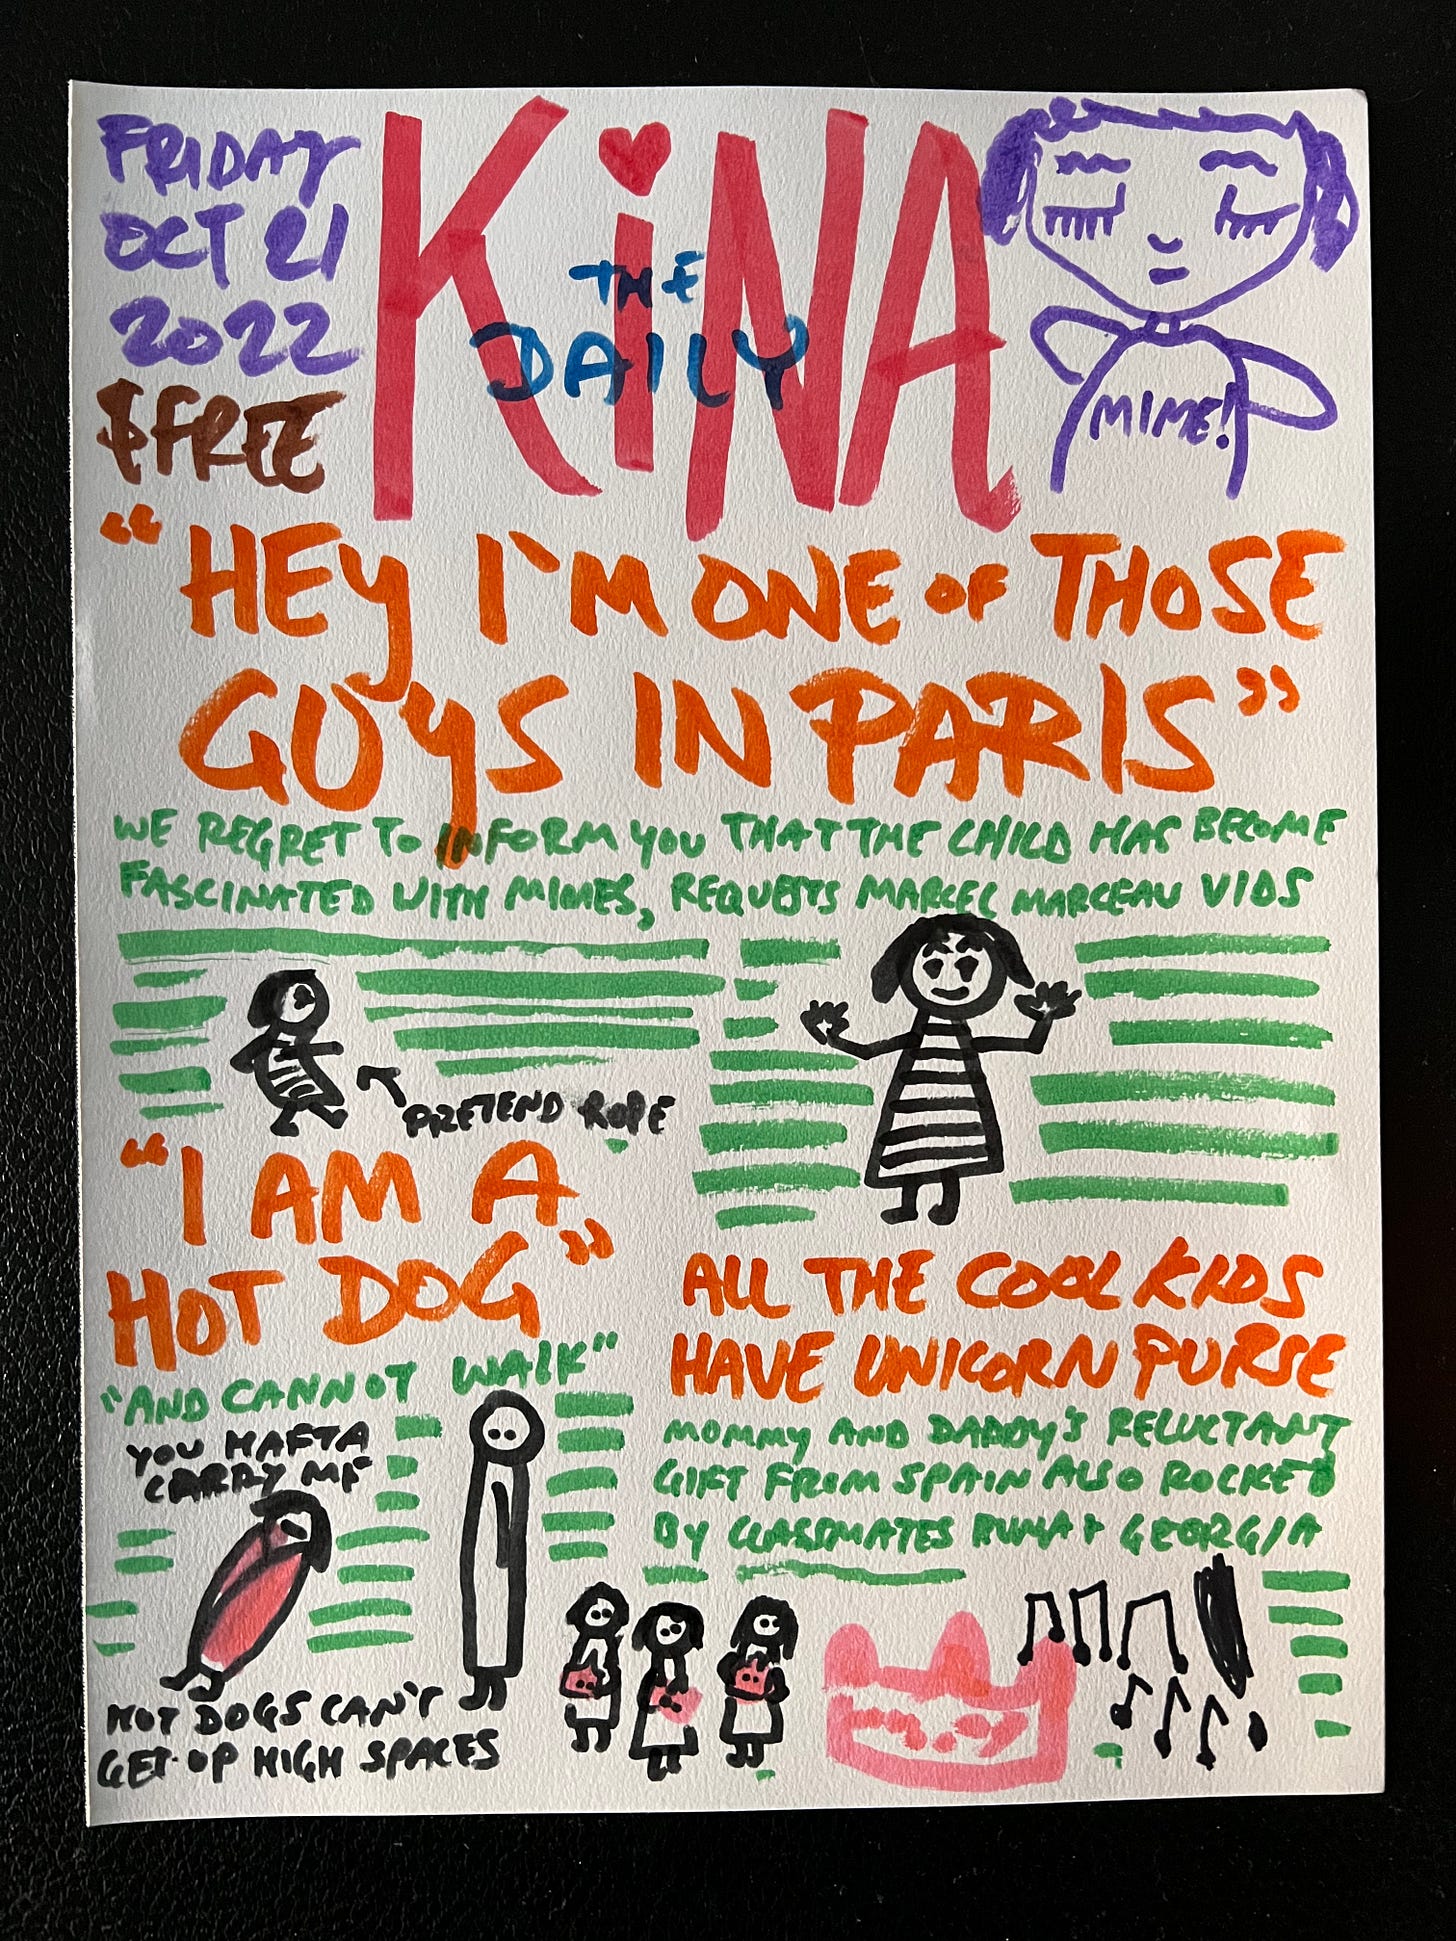 FRIDAY
OCT 21
2022
$FREE
THE
DAILY
KiNA
MIME!
"HEY I'M ONE OF THOSE
GUYS IN PARIS"
WE REGRET TO INFORM YOU THAT THE CHILD HAS BECOME
FASCINATED WITH MIMES, REQUESTS MARCEL MARCEAU VIDS
PRETEND ROPE
"I AM A
HOT DOG"
"AND CANNOT WALK"
YOU HAFTA
CARRY ME
HOT DOGS CAN'T
GET UP HIGH SPACES
ALL THE COOL KIDS
HAVE UNICORN PURSE
MOMMY AND DADDY'S RELUCTANT
GIFT FROM SPAIN ALSO ROCKED
BY CLASSMATES RUNA + GEORGIA